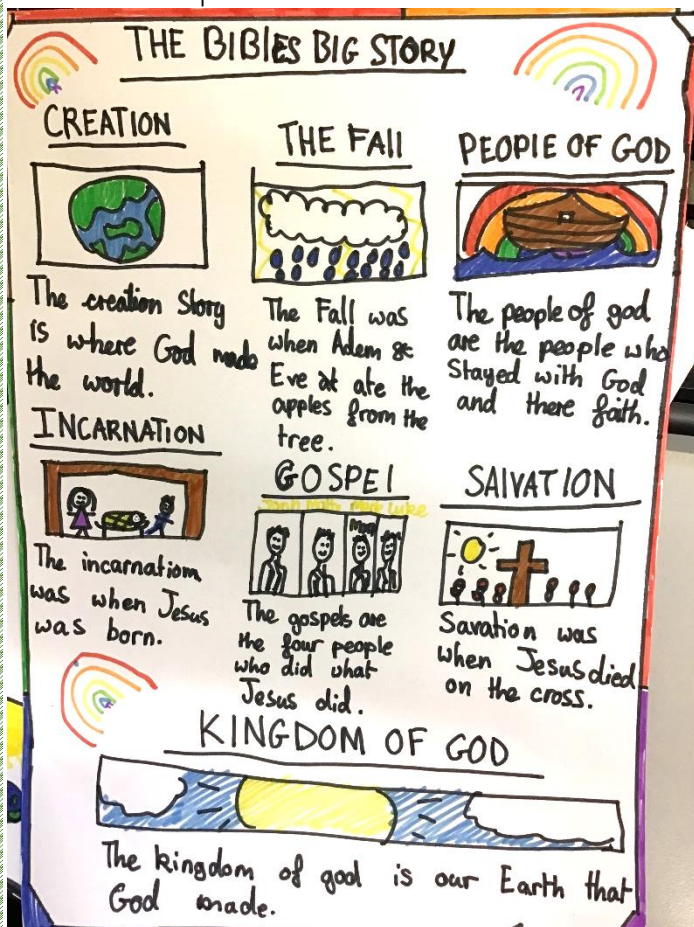 THE BIBlES BIG STORY
CREATION
The creation Story
is where God made
the world.
THE FAll
The Fall was
when Adem &
Eve at ate the
apples from the
tree.
PEOPlE OF GOD
The people of god
are the people who
Stayed with God
and there faith.
INCARNATION
The incarnation
was when Jesus
was born.
GOSPEl
Luke
The gospels are
the four people
who did what
Jesus did.
SAlVATION
Savation was
when Jesus died
on the cross.
KINGDOM OF GOD
The kingdom of god is our Earth that
God made.